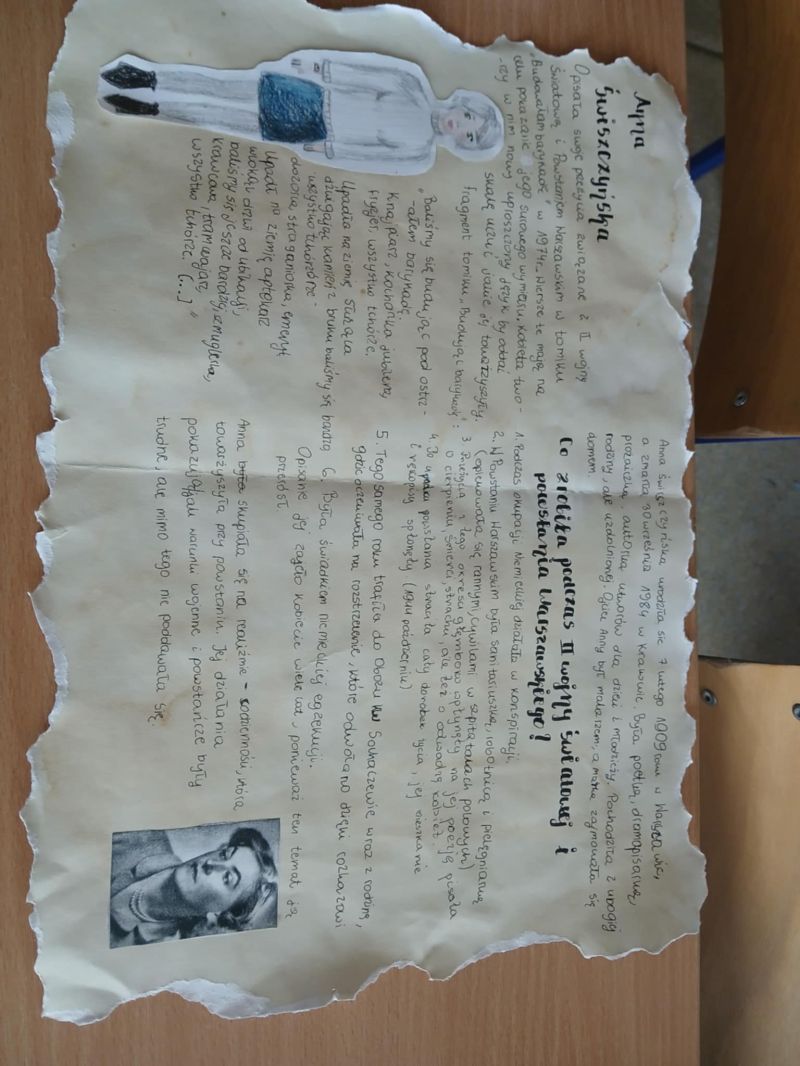 Anna
Świszczyńska
Opisała swoje przeżycia związane z II wojny
Światową i Powstaniem Warszawskim w tomiku
"Budowałam barykadę" w 1974r. Wiersze te mają na
celu pokazanie jego surowego wymiaru. Kobieta two-
-rzy w nim nowy uproszczony język by oddać
skalę uczuć jakie jej towarzyszyły.
fragment tomiku „Budując barykadę":
„Baliśmy się budując pod ostrz-
-ałem barykadę.
Knajpiarz, kochanka jubilera,
fryzjer, wszystko tchórze.
Upadła na ziemię służąca
dźwigając kamień z bruku baliśmy się bardzo
wszystko tchórze -
dozorca, straganiarka, emeryt
Upadł na ziemię aptekarz
wlokąc drzwi od ubikacji,
baliśmy się jeszcze bardziej, szmuglerka,
krawcowa, tramwajarz,
wszystko tchórze. (...)"
Anna Świszczyńska urodziła się 7 lutego 1909 roku w Warszawie,
a zmarła 30 września 1984 w Krakowie. Była poetką, dramapisarką,
prozaiczką, autorką utworów dla dzieci i młodzieży. Pochodziła z ubogiej
rodziny, ale uzdolnionej. Ojciec Anny był malarzem, a matka zajmowała się
domem.
Co zrobiła podczas II wojny światowej i
powstania Warszawskiego?
1. Podczas okupacji Niemieckiej działała w konspiracji.
2. W Powstaniu Warszawskim była sanitariuszką, robotnicą i pielęgniarką
(opiekowała się rannymi, cywilami w szpitalach polowych)
3. Przeżycia z tego okresu głęmboko wpłynęły na jej poezję pisała
o cierpieniu, śmierci, strachu, ale też o odwadze kobiet
4. Do upadku powstania straciła cały dorobek życia, jej mieszkanie
i rękopisy spłonęły (1944 październik)
5. Tego samego roku trafiła do Obozu w Sochaczewie wraz z rodziną,
gdzie oczekiwała na rozstrzelenie, które odwołano dzięki rozkazowi
6. Była świadkiem niemieckiej egzekucji.
Opisane jej zajęło kobiecie wiele lat, ponieważ ten temat ją
przerósł.
Anna skupiała się na realiźmie - codzienności, która
towarzyszyła przy powstaniu. Jej działania
pokazują, jak warunki wojenne i powstańcze były
trudne, ale mimo tego nie poddawała się.